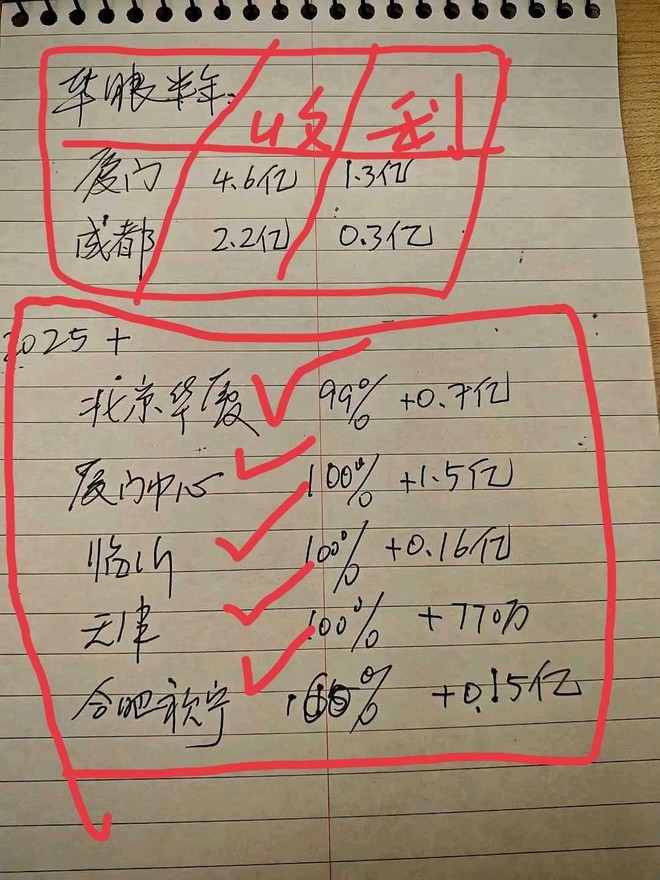 华眼半年: 收 利
厦门 4.6亿 1.3亿
成都 2.2亿 0.3亿
2025+
北京华厦 99% +0.7亿
厦门中心 100% +1.5亿
临沂 100% +0.16亿
天津 100% +770万
合肥视宁 % +0.15亿